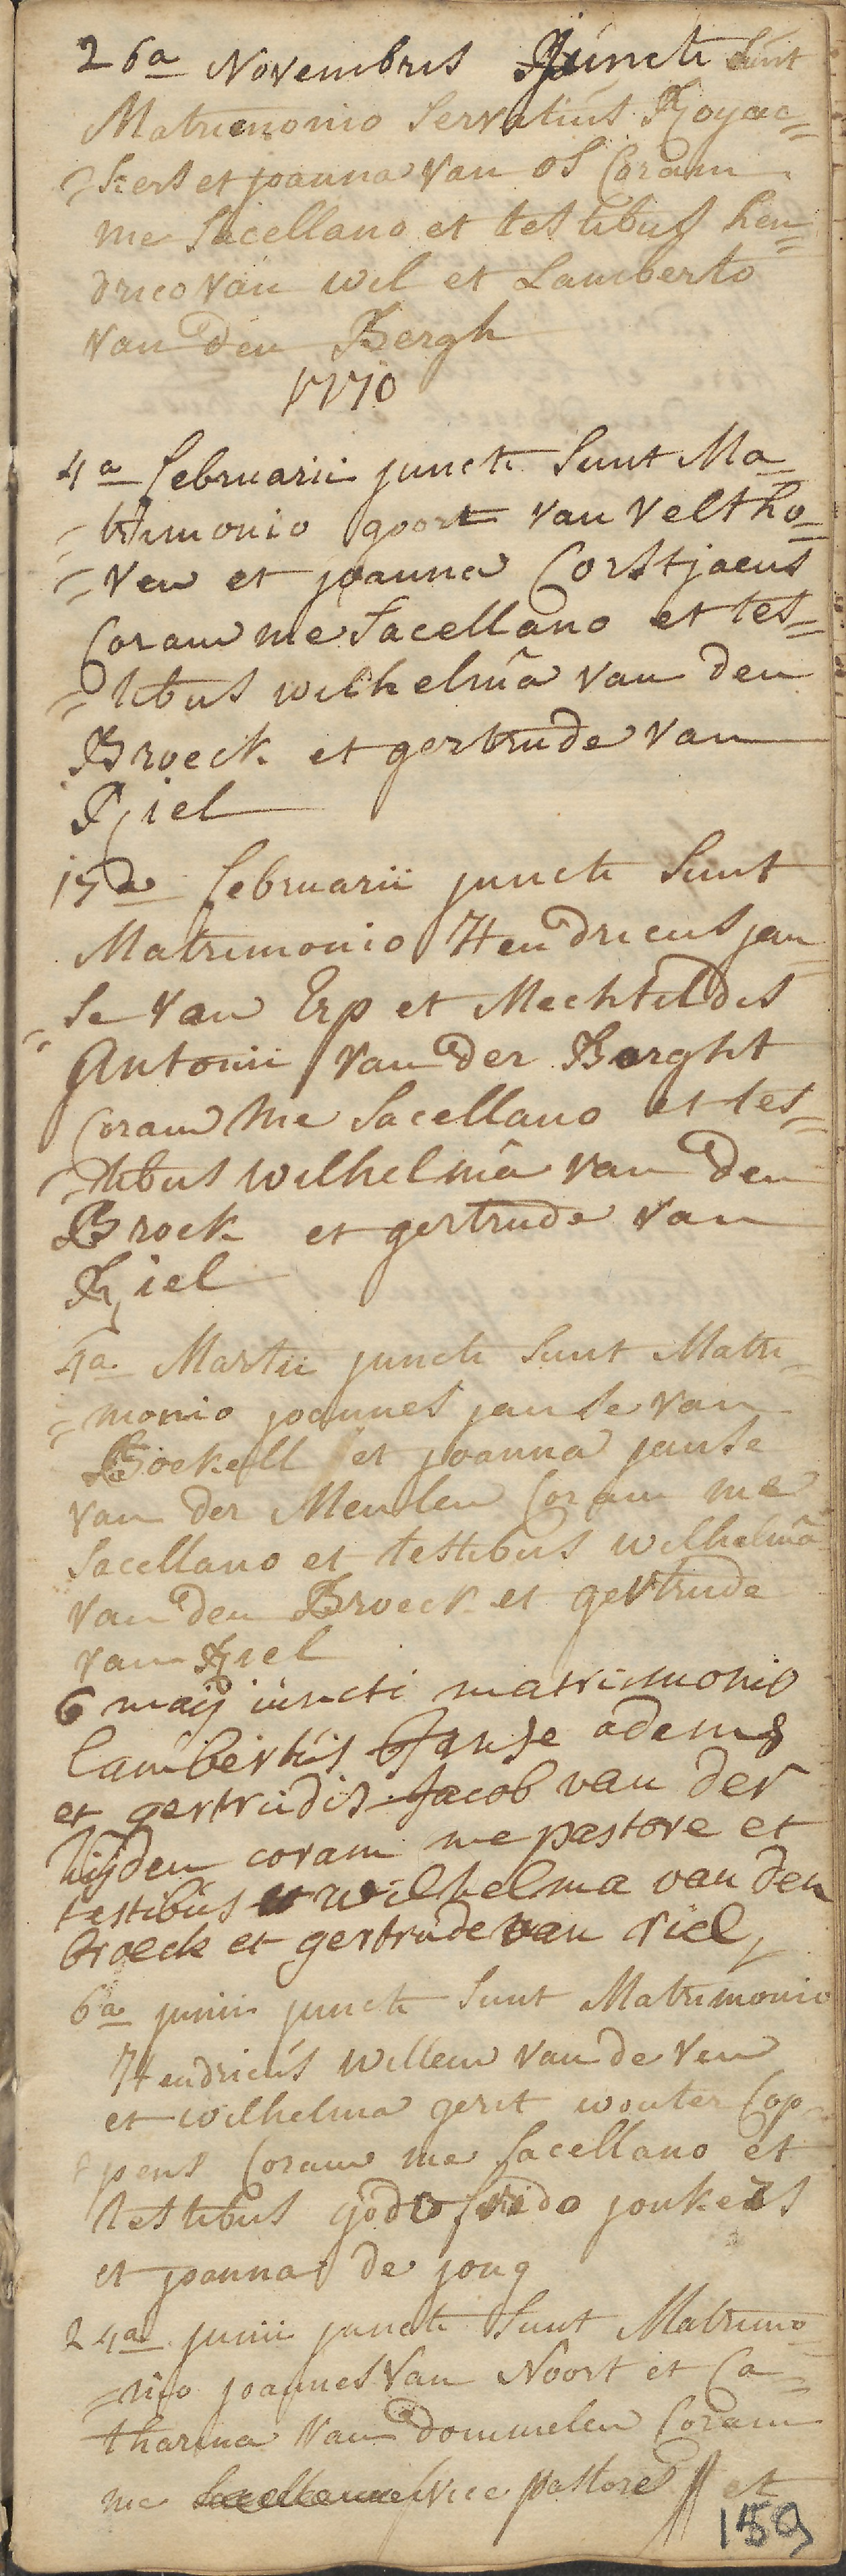 26a Novembris Juncti Sunt
Matrimonio Servatius Royac=
=kers et joanna van os Coram
me Sacellano et testibus hen=
drico van wel et Lamberto
van den Bergh
1770
4a februarii juncti Sunt Ma=
=trimonio goort van veltho=
=ven et joanna Corstjaens
Coram me Sacellano et tes=
=tibus wilhelmâ van den
Broeck et gertrude van
Riel
17a februarii juncti Sunt
Matrimonio Hendricus jan=
=se van Erp et Mechtildis
Antonii van der Borght
Coram me Sacellano et tes=
=tibus wilhelmâ van den
Brock et gertrude van
Riel
4a Martii juncti Sunt Matri=
=monio joannes janse van
Bockell et joanna janse
van der Meulen Coram me
Sacellano et testibus wilhelmâ
van den Broeck et gertrude
van Riel
6 maij iuncti matrimonio
lambertus Janse adems
et gertrudis Jacob van der
hijden coram me pastore et
testibus wilhelma van den
broeck et gertrude van riel
6a junii juncti Sunt Matrimonio
Hendricus Willem van de Ven
et wilhelma gerit wouter Cop=
pens Coram me Sacellano et
testibus godofrido jonkers
et joanna de jong
24a junii juncti Sunt Matrimo=
=nio joannes van Noort et Ca=
tharina van dommelen Coram
me Sacellano vice pastore et
159